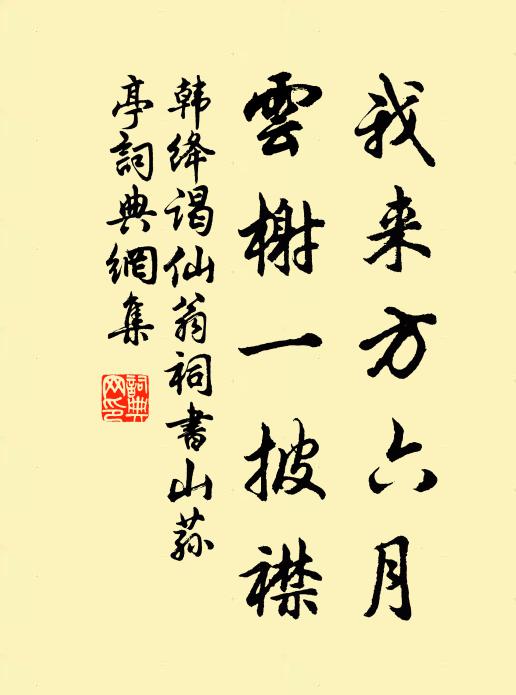 我来方六月
雲榭一披襟
韩绛谒仙翁祠書山荪
亭詞典網集
詞典
网印